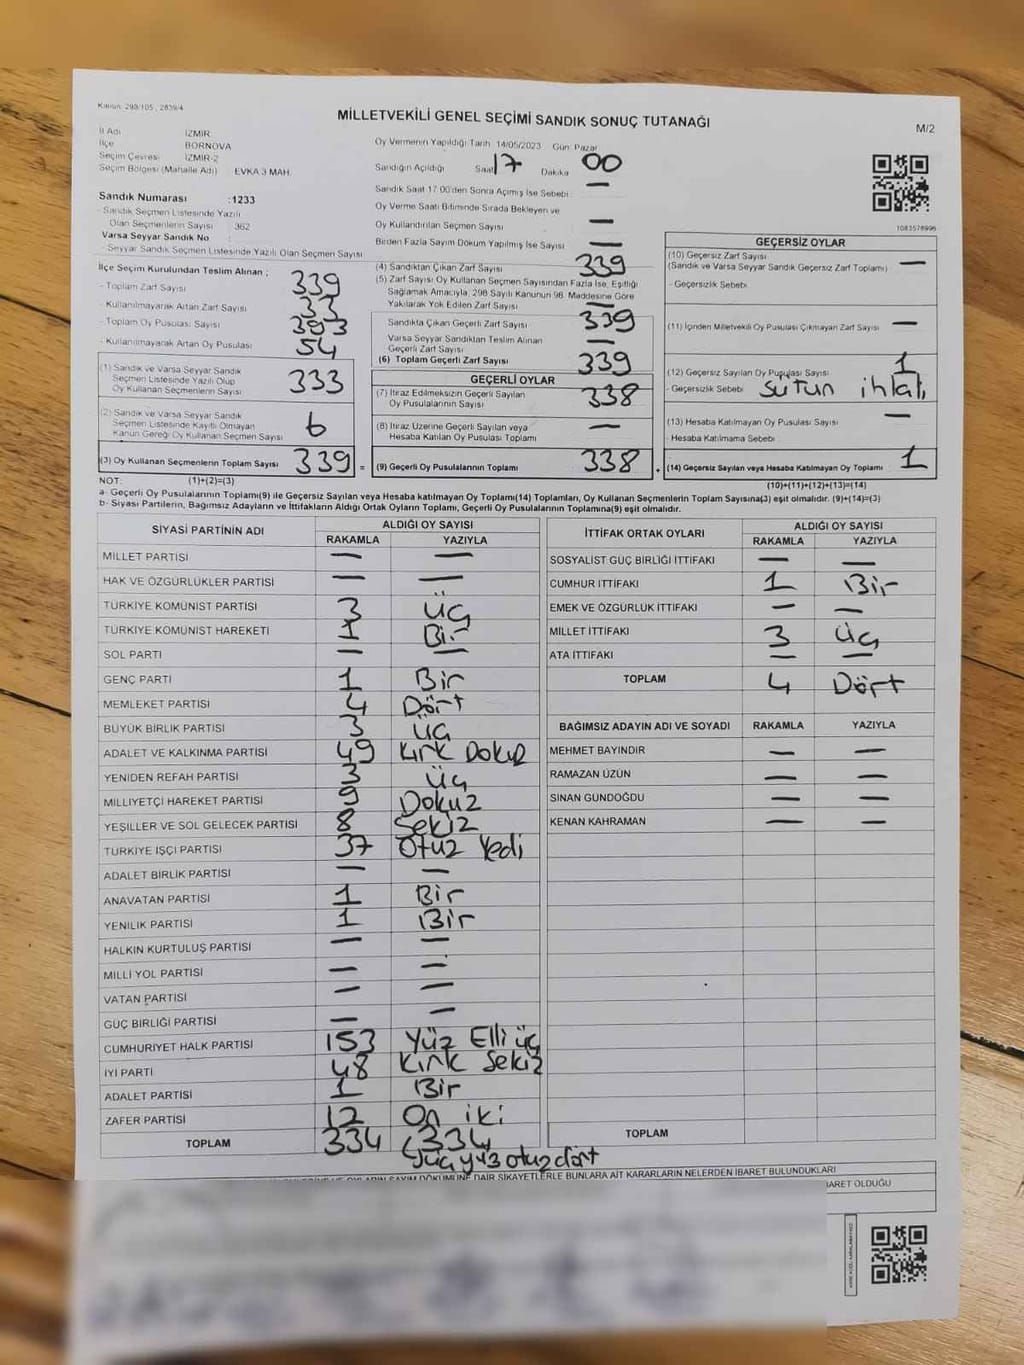 Kanun: 298/105 , 2839/4
MİLLETVEKİLİ GENEL SEÇİMİ SANDIK SONUÇ TUTANAĞI
M/2
İl Adı İZMİR
İlçe BORNOVA
Seçim Çevresi İZMİR-2
Seçim Bölgesi (Mahalle Adı) EVKA 3 MAH.
Sandık Numarası : 1233
- Sandık Seçmen Listesinde Yazılı
Olan Seçmenlerin Sayısı : 362
Varsa Seyyar Sandık No
- Seyyar Sandık Seçmen Listesinde Yazılı Olan Seçmen Sayısı
Oy Vermenin Yapıldığı Tarih 14/05/2023 Gün: Pazar
Sandığın Açıldığı Saat 17 Dakika 00
Sandık Saat 17:00'den Sonra Açımış İse Sebebi : —
Oy Verme Saati Bitiminde Sırada Bekleyen ve
Oy Kullandırılan Seçmen Sayısı —
Birden Fazla Sayım Dökum Yapılmış İse Sayısı —
1083578996
İlçe Seçim Kurulundan Teslim Alınan ;
- Toplam Zarf Sayısı 339
- Kullanılmayarak Artan Zarf Sayısı 33
- Toplam Oy Pusulası Sayısı 393
- Kullanılmayarak Artan Oy Pusulası 54
(1) Sandık ve Varsa Seyyar Sandık
Seçmen Listesinde Yazılı Olup
Oy Kullanan Seçmenlerin Sayısı 333
(2) Sandık ve Varsa Seyyar Sandık
Seçmen Listesinde Kayıtlı Olmayan
Kanun Gereği Oy Kullanan Seçmen Sayısı 6
(3) Oy Kullanan Seçmenlerin Toplam Sayısı 339 =
(4) Sandıktan Çıkan Zarf Sayısı 339
(5) Zarf Sayısı Oy Kullanan Seçmen Sayısından Fazla İse, Eşitliği
Sağlamak Amacıyla, 298 Sayılı Kanunun 98. Maddesine Göre
Yakılarak Yok Edilen Zarf Sayısı —
Sandıkta Çıkan Geçerli Zarf Sayısı 339
Varsa Seyyar Sandıktan Teslim Alınan
Geçerli Zarf Sayısı —
(6) Toplam Geçerli Zarf Sayısı 339
GEÇERLİ OYLAR
(7) İtiraz Edilmeksizin Geçerli Sayılan
Oy Pusulalarının Sayısı 338
(8) İtiraz Üzerine Geçerli Sayılan veya
Hesaba Katılan Oy Pusulası Toplamı —
(9) Geçerli Oy Pusulalarının Toplamı 338 +
GEÇERSİZ OYLAR
(10) Geçersiz Zarf Sayısı
(Sandık ve Varsa Seyyar Sandık Geçersiz Zarf Toplamı) —
- Geçersizlik Sebebi
(11) İçinden Milletvekili Oy Pusulası Çıkmayan Zarf Sayısı —
(12) Geçersiz Sayılan Oy Pusulası Sayısı 1
- Geçersizlik Sebebi Sütun ihlali
(13) Hesaba Katılmayan Oy Pusulası Sayısı —
- Hesaba Katılmama Sebebi
(14) Geçersiz Sayılan veya Hesaba Katılmayan Oy Toplamı 1
NOT: (1)+(2)=(3) (10)+(11)+(12)+(13)=(14)
a- Geçerli Oy Pusulalarının Toplamı(9) ile Geçersiz Sayılan veya Hesaba katılmayan Oy Toplamı(14) Toplamları, Oy Kullanan Seçmenlerin Toplam Sayısına(3) eşit olmalıdır. (9)+(14)=(3)
b- Siyasi Partilerin, Bağımsız Adayların ve İttifakların Aldığı Ortak Oyların Toplamı, Geçerli Oy Pusulalarının Toplamına(9) eşit olmalıdır.
SİYASİ PARTİNİN ADI ALDIĞI OY SAYISI
RAKAMLA YAZIYLA
MİLLET PARTİSİ — —
HAK VE ÖZGÜRLÜKLER PARTİSİ — —
TÜRKİYE KOMÜNİST PARTİSİ 3 üç
TÜRKİYE KOMÜNİST HAREKETİ 1 Bir
SOL PARTİ — —
GENÇ PARTİ 1 Bir
MEMLEKET PARTİSİ 4 Dört
BÜYÜK BİRLİK PARTİSİ 3 üç
ADALET VE KALKINMA PARTİSİ 49 Kırk Dokuz
YENİDEN REFAH PARTİSİ 3 üç
MİLLİYETÇİ HAREKET PARTİSİ 9 Dokuz
YEŞİLLER VE SOL GELECEK PARTİSİ 8 Sekiz
TÜRKİYE İŞÇİ PARTİSİ 37 Otuz Yedi
ADALET BİRLİK PARTİSİ — —
ANAVATAN PARTİSİ 1 Bir
YENİLİK PARTİSİ 1 Bir
HALKIN KURTULUŞ PARTİSİ — —
MİLLİ YOL PARTİSİ — —
VATAN PARTİSİ — —
GÜÇ BİRLİĞİ PARTİSİ — —
CUMHURİYET HALK PARTİSİ 153 Yüz Elli üç
İYİ PARTİ 48 Kırk Sekiz
ADALET PARTİSİ 1 Bir
ZAFER PARTİSİ 12 On iki
TOPLAM 334 (334)
üçyüzotuzdört
İTTİFAK ORTAK OYLARI ALDIĞI OY SAYISI
RAKAMLA YAZIYLA
SOSYALİST GÜÇ BİRLİĞİ İTTİFAKI — —
CUMHUR İTTİFAKI 1 Bir
EMEK VE ÖZGÜRLÜK İTTİFAKI — —
MİLLET İTTİFAKI 3 üç
ATA İTTİFAKI — —
TOPLAM 4 Dört
BAĞIMSIZ ADAYIN ADI VE SOYADI RAKAMLA YAZIYLA
MEHMET BAYINDIR — —
RAMAZAN ÜZÜN — —
SİNAN GÜNDOĞDU — —
KENAN KAHRAMAN — —
TOPLAM
DÖKÜMÜNE DAİR ŞİKAYETLERLE BUNLARA AİT KARARLARIN NELERDEN İBARET BULUNDUKLARI
İBARET OLDUĞU